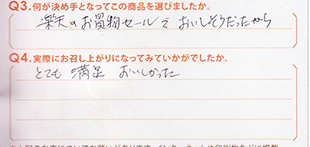 Q3.何が決め手となってこの商品を選びましたか。
楽天のお買物セールでおいしそうだったから
Q4.実際にお召し上がりになってみていかがでしたか。
とても満足 おいしかった